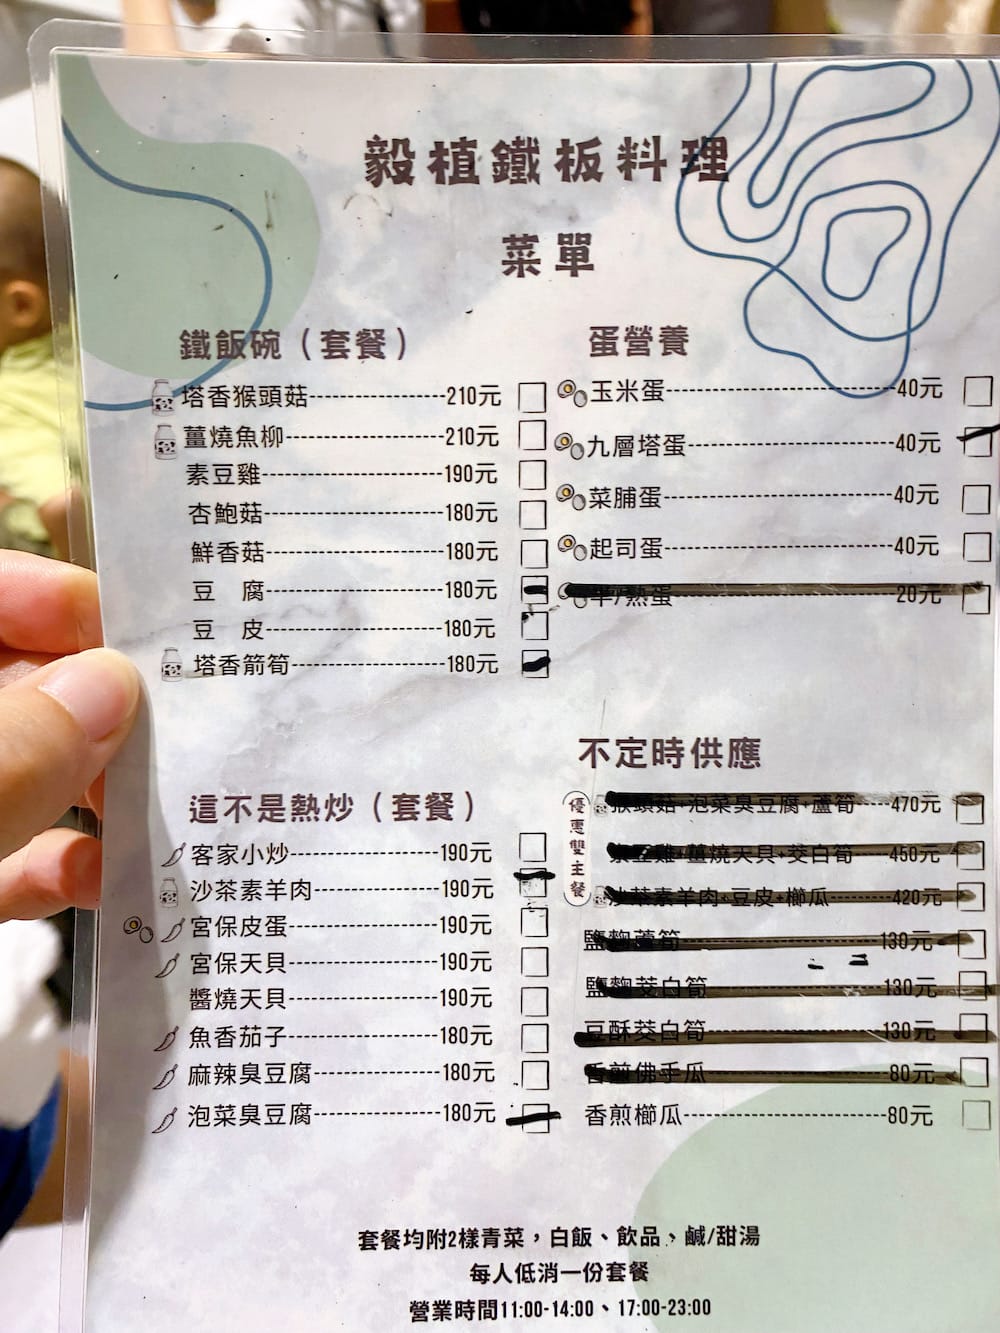 毅植鐵板料理
菜單
鐵飯碗（套餐）
塔香猴頭菇----------------210元
薑燒魚柳----------------210元
素豆雞----------------190元
杏鮑菇----------------180元
鮮香菇----------------180元
豆　腐----------------180元
豆　皮----------------180元
塔香箭筍----------------180元
蛋營養
玉米蛋----------------40元
九層塔蛋----------------40元
菜脯蛋----------------40元
起司蛋----------------40元
半/熟蛋 20元
這不是熱炒（套餐）
客家小炒----------------190元
沙茶素羊肉----------------190元
宮保皮蛋----------------190元
宮保天貝----------------190元
醬燒天貝----------------190元
魚香茄子----------------180元
麻辣臭豆腐----------------180元
泡菜臭豆腐----------------180元
不定時供應
優惠雙主餐
猴頭菇+泡菜臭豆腐+蘆筍----470元
素豆雞+薑燒天貝+茭白筍----450元
沙茶素羊肉+豆皮+櫛瓜----420元
鹽麴蘆筍----------------130元
鹽麴茭白筍----------------130元
豆酥茭白筍----------------130元
香煎佛手瓜----------------80元
香煎櫛瓜----------------80元
套餐均附2樣青菜，白飯、飲品、鹹/甜湯
每人低消一份套餐
營業時間11:00-14:00、17:00-23:00